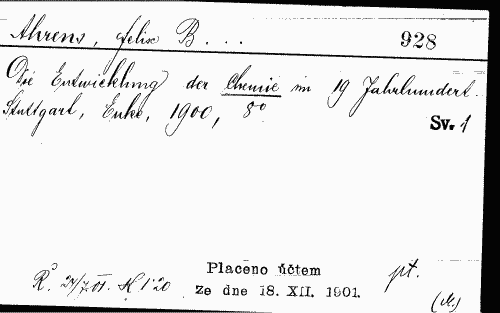 Ahrens, Felix B. . . .
928
Die Entwicklung der Chemie im 19 Jahrhundert.
Stuttgart, Enke, 1900, 8°
Sv. 1
Placeno účtem
ze dne 18. XII. 1901.
pt.
R. 24/7.01. M 1.20
(M.)